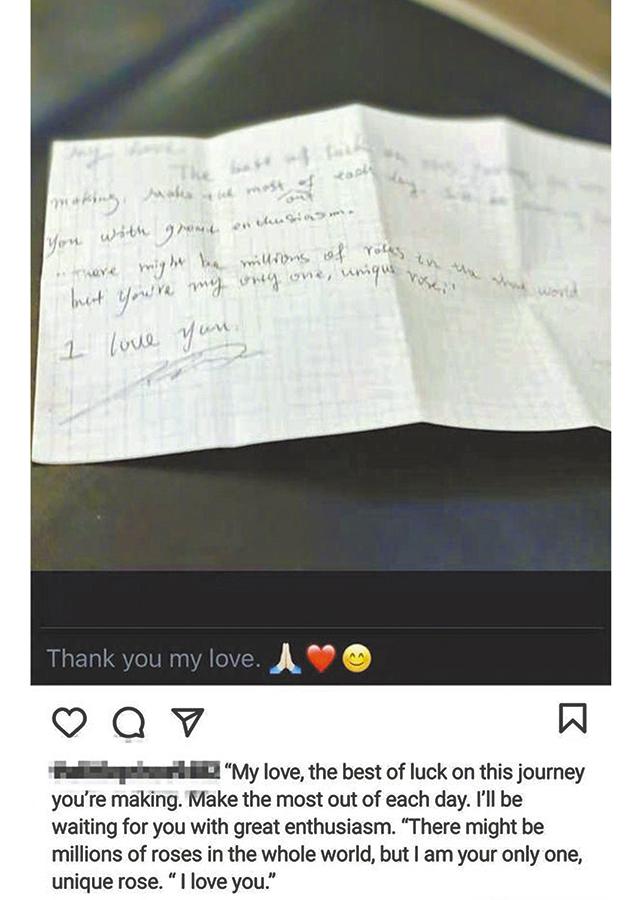 my love
The best of luck on this
making. Make the most of each day.
out
you with great enthusiasm.
"There might be millions of roses in the world
but you're my only one, unique rose."
I love you.
Thank you my love. 🙏🏻❤️😊
"My love, the best of luck on this journey
you're making. Make the most out of each day. I'll be
waiting for you with great enthusiasm. "There might be
millions of roses in the whole world, but I am your only one,
unique rose. " I love you."